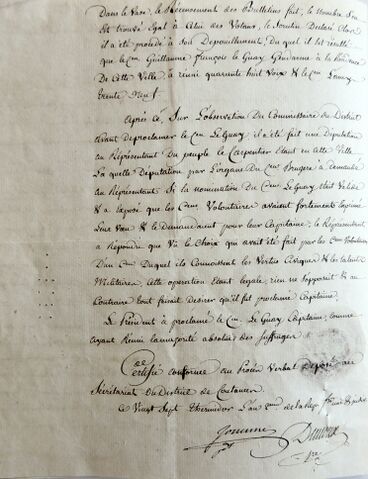 Dans le Vase, le Recensement des Bulletins fait, le nombre s'en
est trouvé égal à celui des Votans, le scrutin Declaré Clos
il a été procédé à son Depouillement, Du quel il est résulté
que le Cen Guillaume François le Guay Gendarme à la Résidence
De Cette Ville a reuni quarante huit Voix & le Cen
trente Neuf.
Après Ce, Sur L'observation Du Commissaire du District
avant de proclamer le Cen Le Guay, il a été fait une Députation
au Représentant Du peuple le Carpentier Etant en cette Ville
La quelle Deputation par l'organe Du Cen a demandé
au Représentant Si la nomination Du Cen Le Guay était Valide
& a exposé que les Cens Volontaires avaient fortement exprimé
Leur Vœu & le Demandaient pour leur Capitaine; le Représentant
a Repondu que Vû le Choix qui avait été fait par les Cens Volontaires
D'un Cen Duquel ils Connoissent les Vertus Civiques & les talents
Militaires, Cette opération étant legale, rien ne s'opposait & au
Contraire tout faisait Désirer qu'il fut proclamé Capitaine.
Le Président à proclamé le Cen Le Guay, Capitaine, comme
ayant Réuni la majorité absolue des Suffrages.
Certifié conforme au Procès Verbal Deposé au
Sécrétariat Du District de Coutances
Ce Vingt Sept thermidor L'an 2me de la Rep.